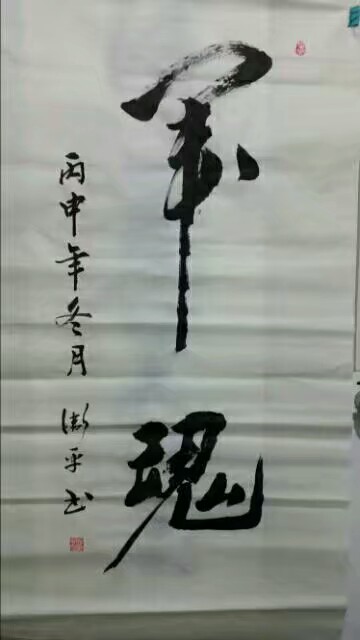 军魂
丙申年冬月 澎平书